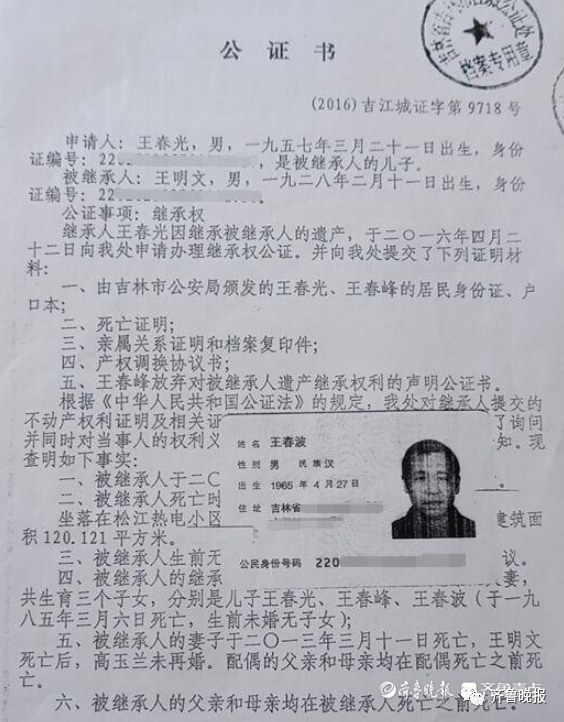 公证书
吉林省吉林市江城公证处
档案专用章
(2016)吉江城证字第9718号
申请人：王春光，男，一九五七年三月二十一日出生，身份
证编号：220 ，是被继承人的儿子。
被继承人：王明文，男，一九二八年二月十一日出生，身份
证编号：220 。
公证事项：继承权
继承人王春光因继承被继承人的遗产，于二〇一六年四月二
十二日向我处申请办理继承权公证。并向我处提交了下列证明材
料：
一、由吉林市公安局颁发的王春光、王春峰的居民身份证、户
口本；
二、死亡证明；
三、亲属关系证明和档案复印件；
四、产权调换协议书；
五、王春峰放弃对被继承人遗产继承权利的声明公证书。
根据《中华人民共和国公证法》的规定，我处对继承人提交的
不动产权利证明及相关证 了询问
并同时对当事人的权利义 知。现
查明如下事实：
一、被继承人于二〇 。
二、被继承人死亡时
坐落在松江热电小区 建筑面
积120.121平方米。
三、被继承人生前无 议。
四、被继承人的继承 妻，
共生育三个子女，分别是儿子王春光、王春峰、王春波（于一九
八五年三月六日死亡，生前未婚无子女）；
五、被继承人的妻子于二〇一三年三月十一日死亡，王明文
死亡后，高玉兰未再婚。配偶的父亲和母亲均在配偶死亡之前死
亡。
六、被继承人的父亲和母亲均在被继承人死亡之前死亡。
姓名 王春波
性别 男 民族 汉
出生 1965 年 4 月 27 日
住址 吉林省
公民身份号码 220
齐鲁晚报 齐鲁壹点
齐鲁晚报